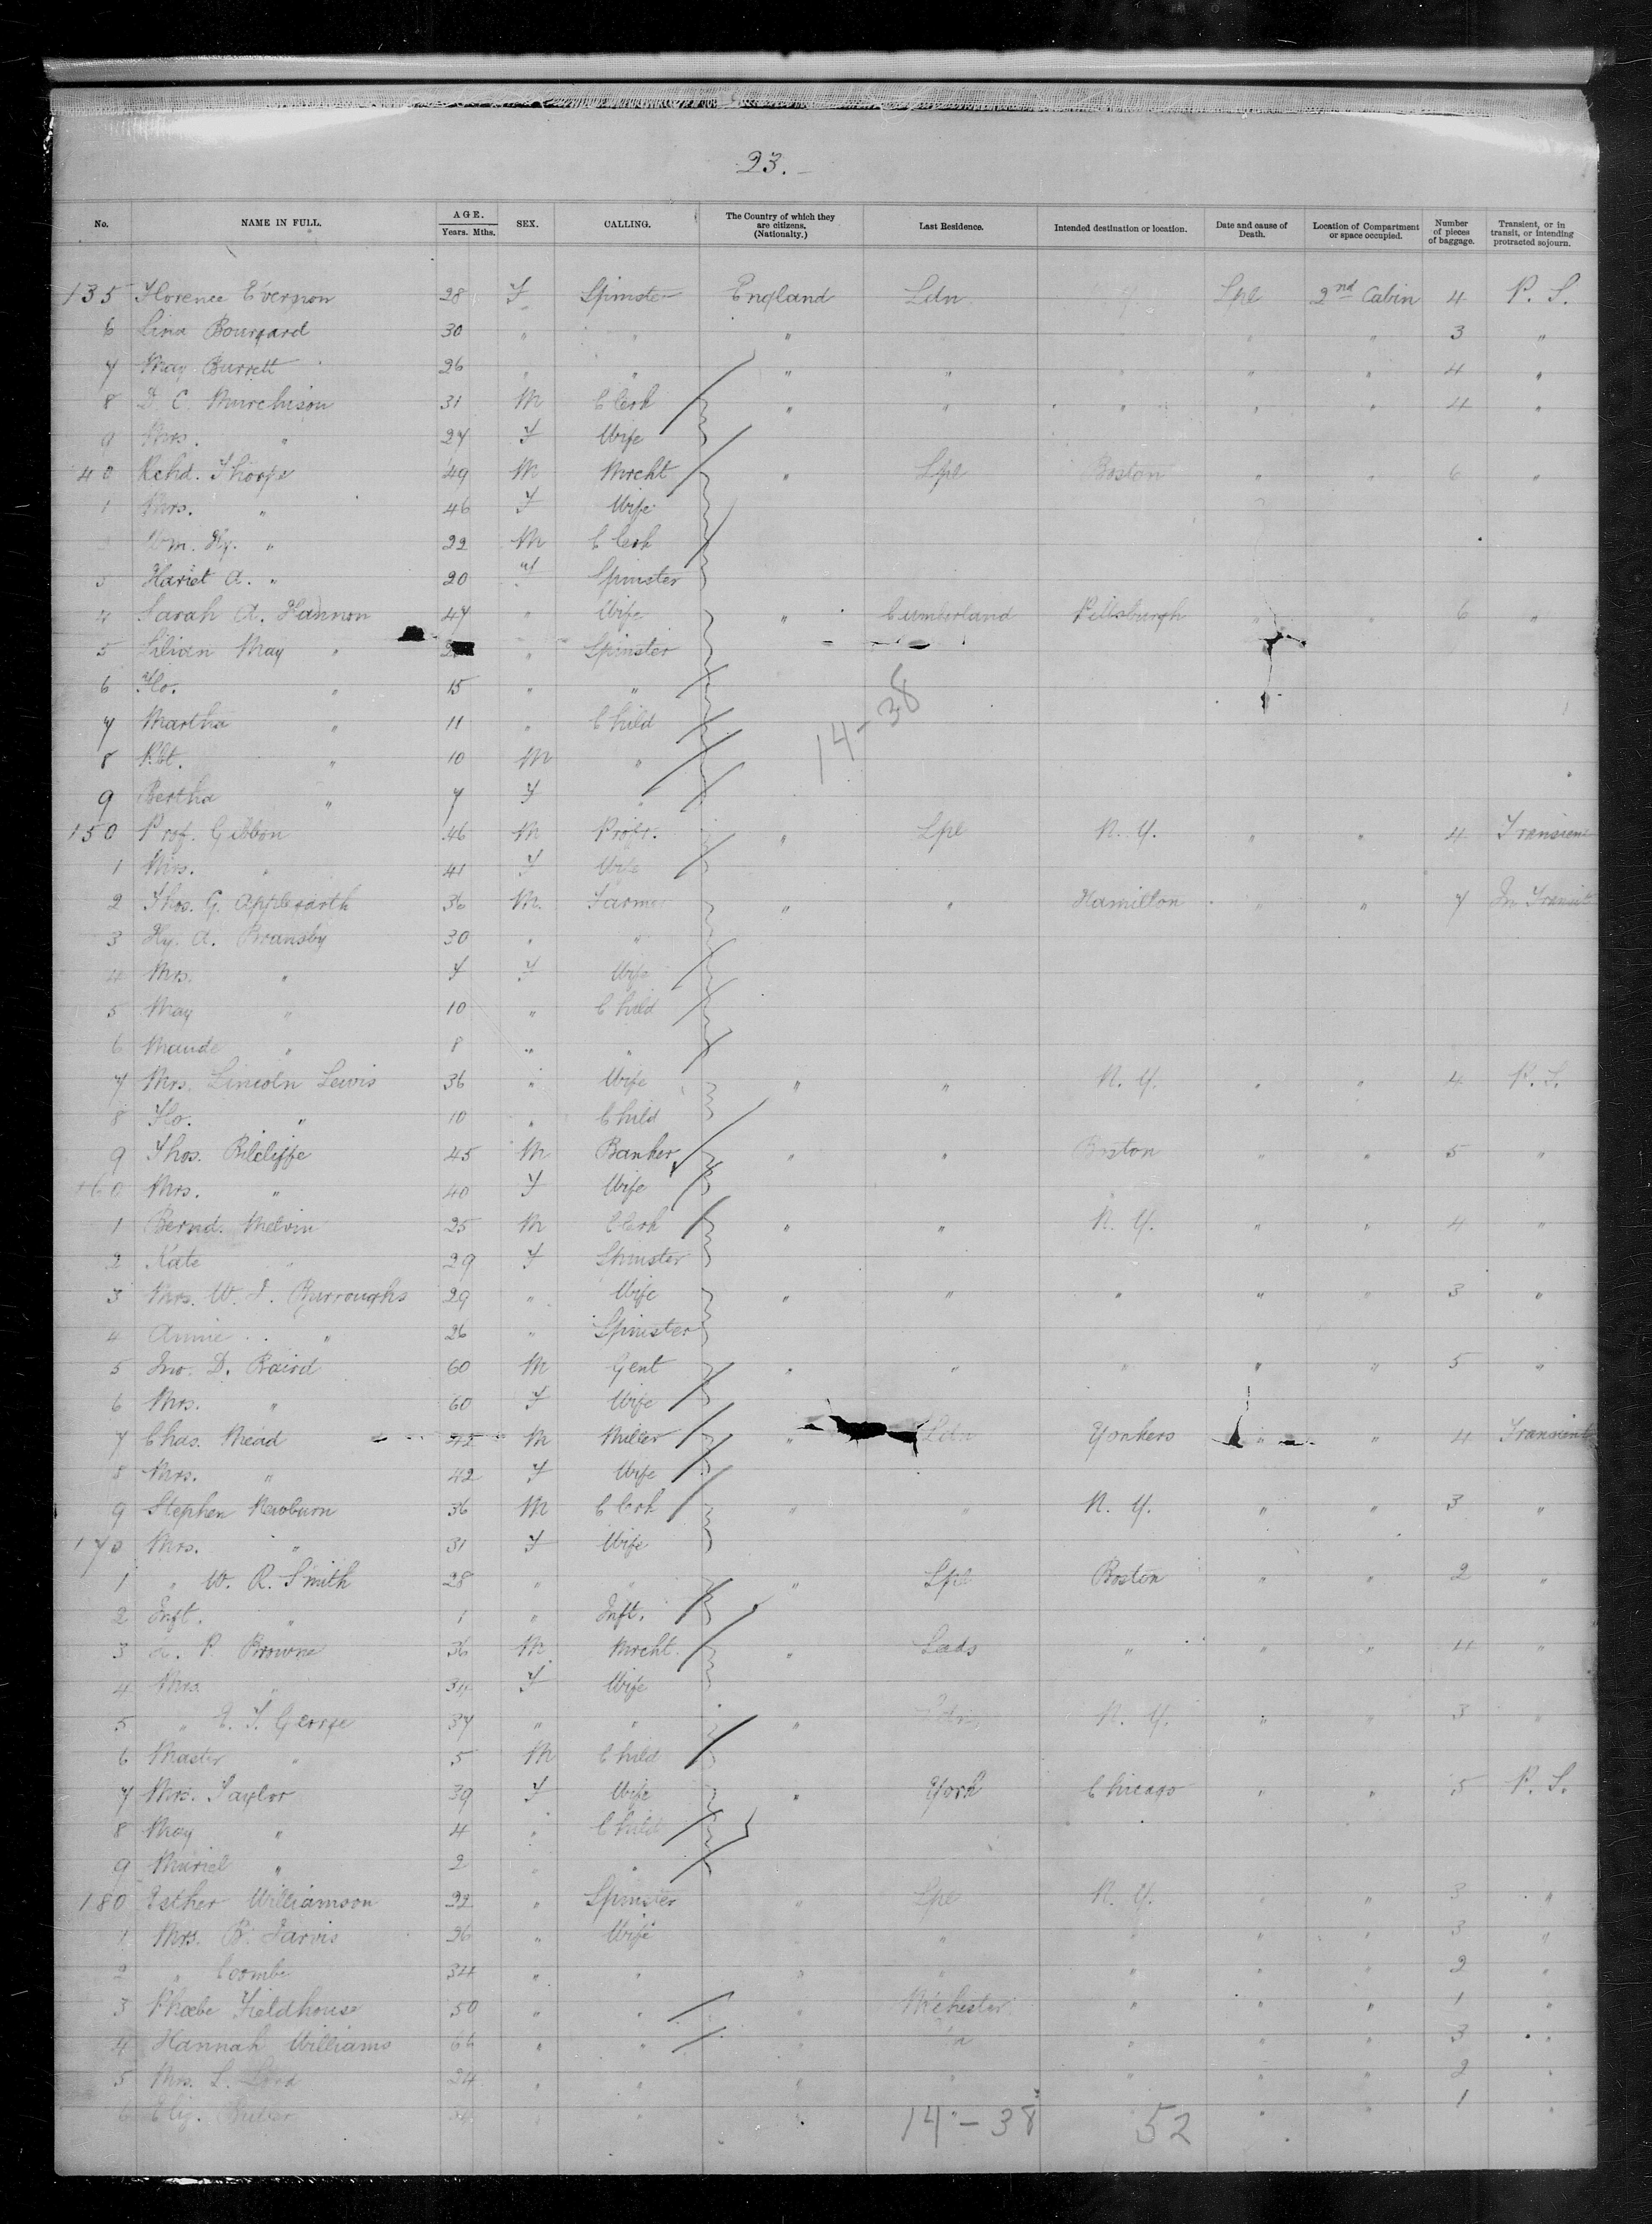 23.
No. NAME IN FULL. AGE. Years. Mths. SEX. CALLING. The Country of which they are citizens. (Nationalty.) Last Residence. Intended destination or location. Date and cause of Death. Location of Compartment or space occupied. Number of pieces of baggage. Transient, or in transit, or intending protracted sojourn.
135 Florence Evernon 28 F Spinster England Ldn Lpl 2nd Cabin 4 P. S.
6 Lina 30 " " " " " 3 "
7 May Burrett 26 " " " " " " " 4 "
8 D. C. Murchison 31 M Clerk " " " " " 4 "
9 Mrs. " 27 F Wife
40 Rchd. Thorpe 49 M Mrcht " Lpl Boston " " 6 "
1 Mrs. " 46 F Wife
Wm. Hy. " 22 M Clerk
3 Hariet A. " 20 Spinster
4 Sarah A. Hannon 47 " Wife " Cumberland Pittsburgh " " 6 "
5 Lilian May " " Spinster
6 Flo. " 15 " "
7 Martha " 11 " Child
8 Rbt. " 10 M "
9 Bertha " 7 F "
14-38
150 Prof. Gibbon 46 M Profr. " Lpl N. Y. " " 4 Transient
1 Mrs. " 41 F Wife
2 Thos. G. Applegarth 36 M. Farmer " " Hamilton " " 7 In Transit
3 Hy. A. Bransby 30 " "
4 Mrs. " F Wife
5 May " 10 " Child
6 Maude " 8 " "
7 Mrs. Lincoln Lewis 36 " Wife " " N. Y. " " 4 P. S.
8 Flo. " 10 " Child
9 Thos. Bilcliffe 45 M Banker " " Boston " " 5 "
160 Mrs. " 40 F Wife
1 Bernd. Melvin 25 M Clerk " " N. Y. " " 4 "
2 Kate " 29 F Spinster
3 Mrs. W. J. Burroughs 29 " Wife " " " " " 3 "
4 Annie " 26 " Spinster
5 Jno. D. Baird 60 M Gent " " " " " 5 "
6 Mrs. " 60 F Wife
7 Chas. Mead 42 M Miller " Ldn Yonkers " " 4 Transient
8 Mrs. " 42 F Wife
9 Stephen Newburn 36 M Clerk " " N. Y. " " 3 "
170 Mrs. " 31 F Wife
1 " W. R. Smith 28 " " " Lpl Boston " " 2 "
2 Inft. " 1 " Inft.
3 P. Browne 36 M Mrcht. " Leds " " " 4 "
4 Mrs. " 34 F Wife
5 " E. T. George 37 " " " Ldn N. Y. " " 3 "
6 Master " 5 M Child
7 Mrs. Taylor 39 F Wife " York Chicago " " 5 P. S.
8 May " 4 " Child
9 Muriel " 2 " "
180 Esther Williamson 22 " Spinster " Lpl N. Y. " " 3 "
1 Mrs. B. Jarvis 26 " Wife " " " " 3 "
2 " Coombe 34 " " " " " " " 2 "
3 Phœbe Fieldhouse 50 " " " Mchester " " " 1 "
4 Hannah Williams 66 " " " " " " 3 "
5 Mrs. L. 24 " " " " " " " 2 "
6 Eliz. Butler " " " " " 1 "
14-38 52